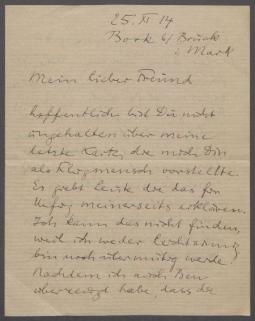 25. XI 14
Bork b/ Brück
i Mark
Mein lieber Freund
hoffentlich bist Du nicht
ungehalten über meine
letzte Karte, die mich Dir
als vorstellte.
Es giebt Leute die das für
Unfug meinerseits erklären.
Ich kann das nicht finden,
weil ich weder
bin noch übermütig werde.
Nachdem ich mich
überzeugt habe, dass die